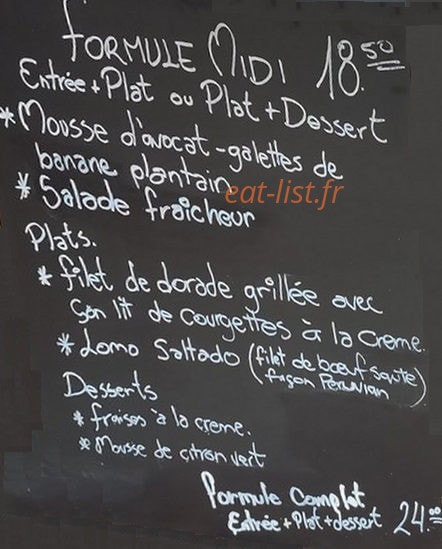 FORMULE MIDI 18.50
Entrée + Plat ou Plat + Dessert
* Mousse d'avocat - galettes de
banane plantain
eat-list.fr
* Salade fraîcheur
Plats.
* filet de dorade grillée avec
son lit de courgettes à la creme.
* Lomo Saltado (filet de bœuf saute
façon Peruvian)
Desserts
* fraises à la creme.
* Mousse de citron vert
Formule Complet
Entrée + Plat + dessert 24.00